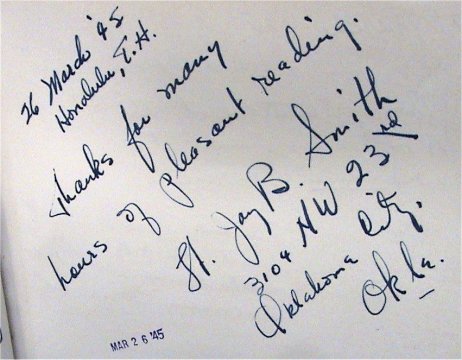 26 March '45
Honolulu, T.H.
Thanks for many
hours of pleasant reading.
Lt. Jay B. Smith
3104 NW 23rd
Oklahoma City,
Okla.
MAR 26 '45